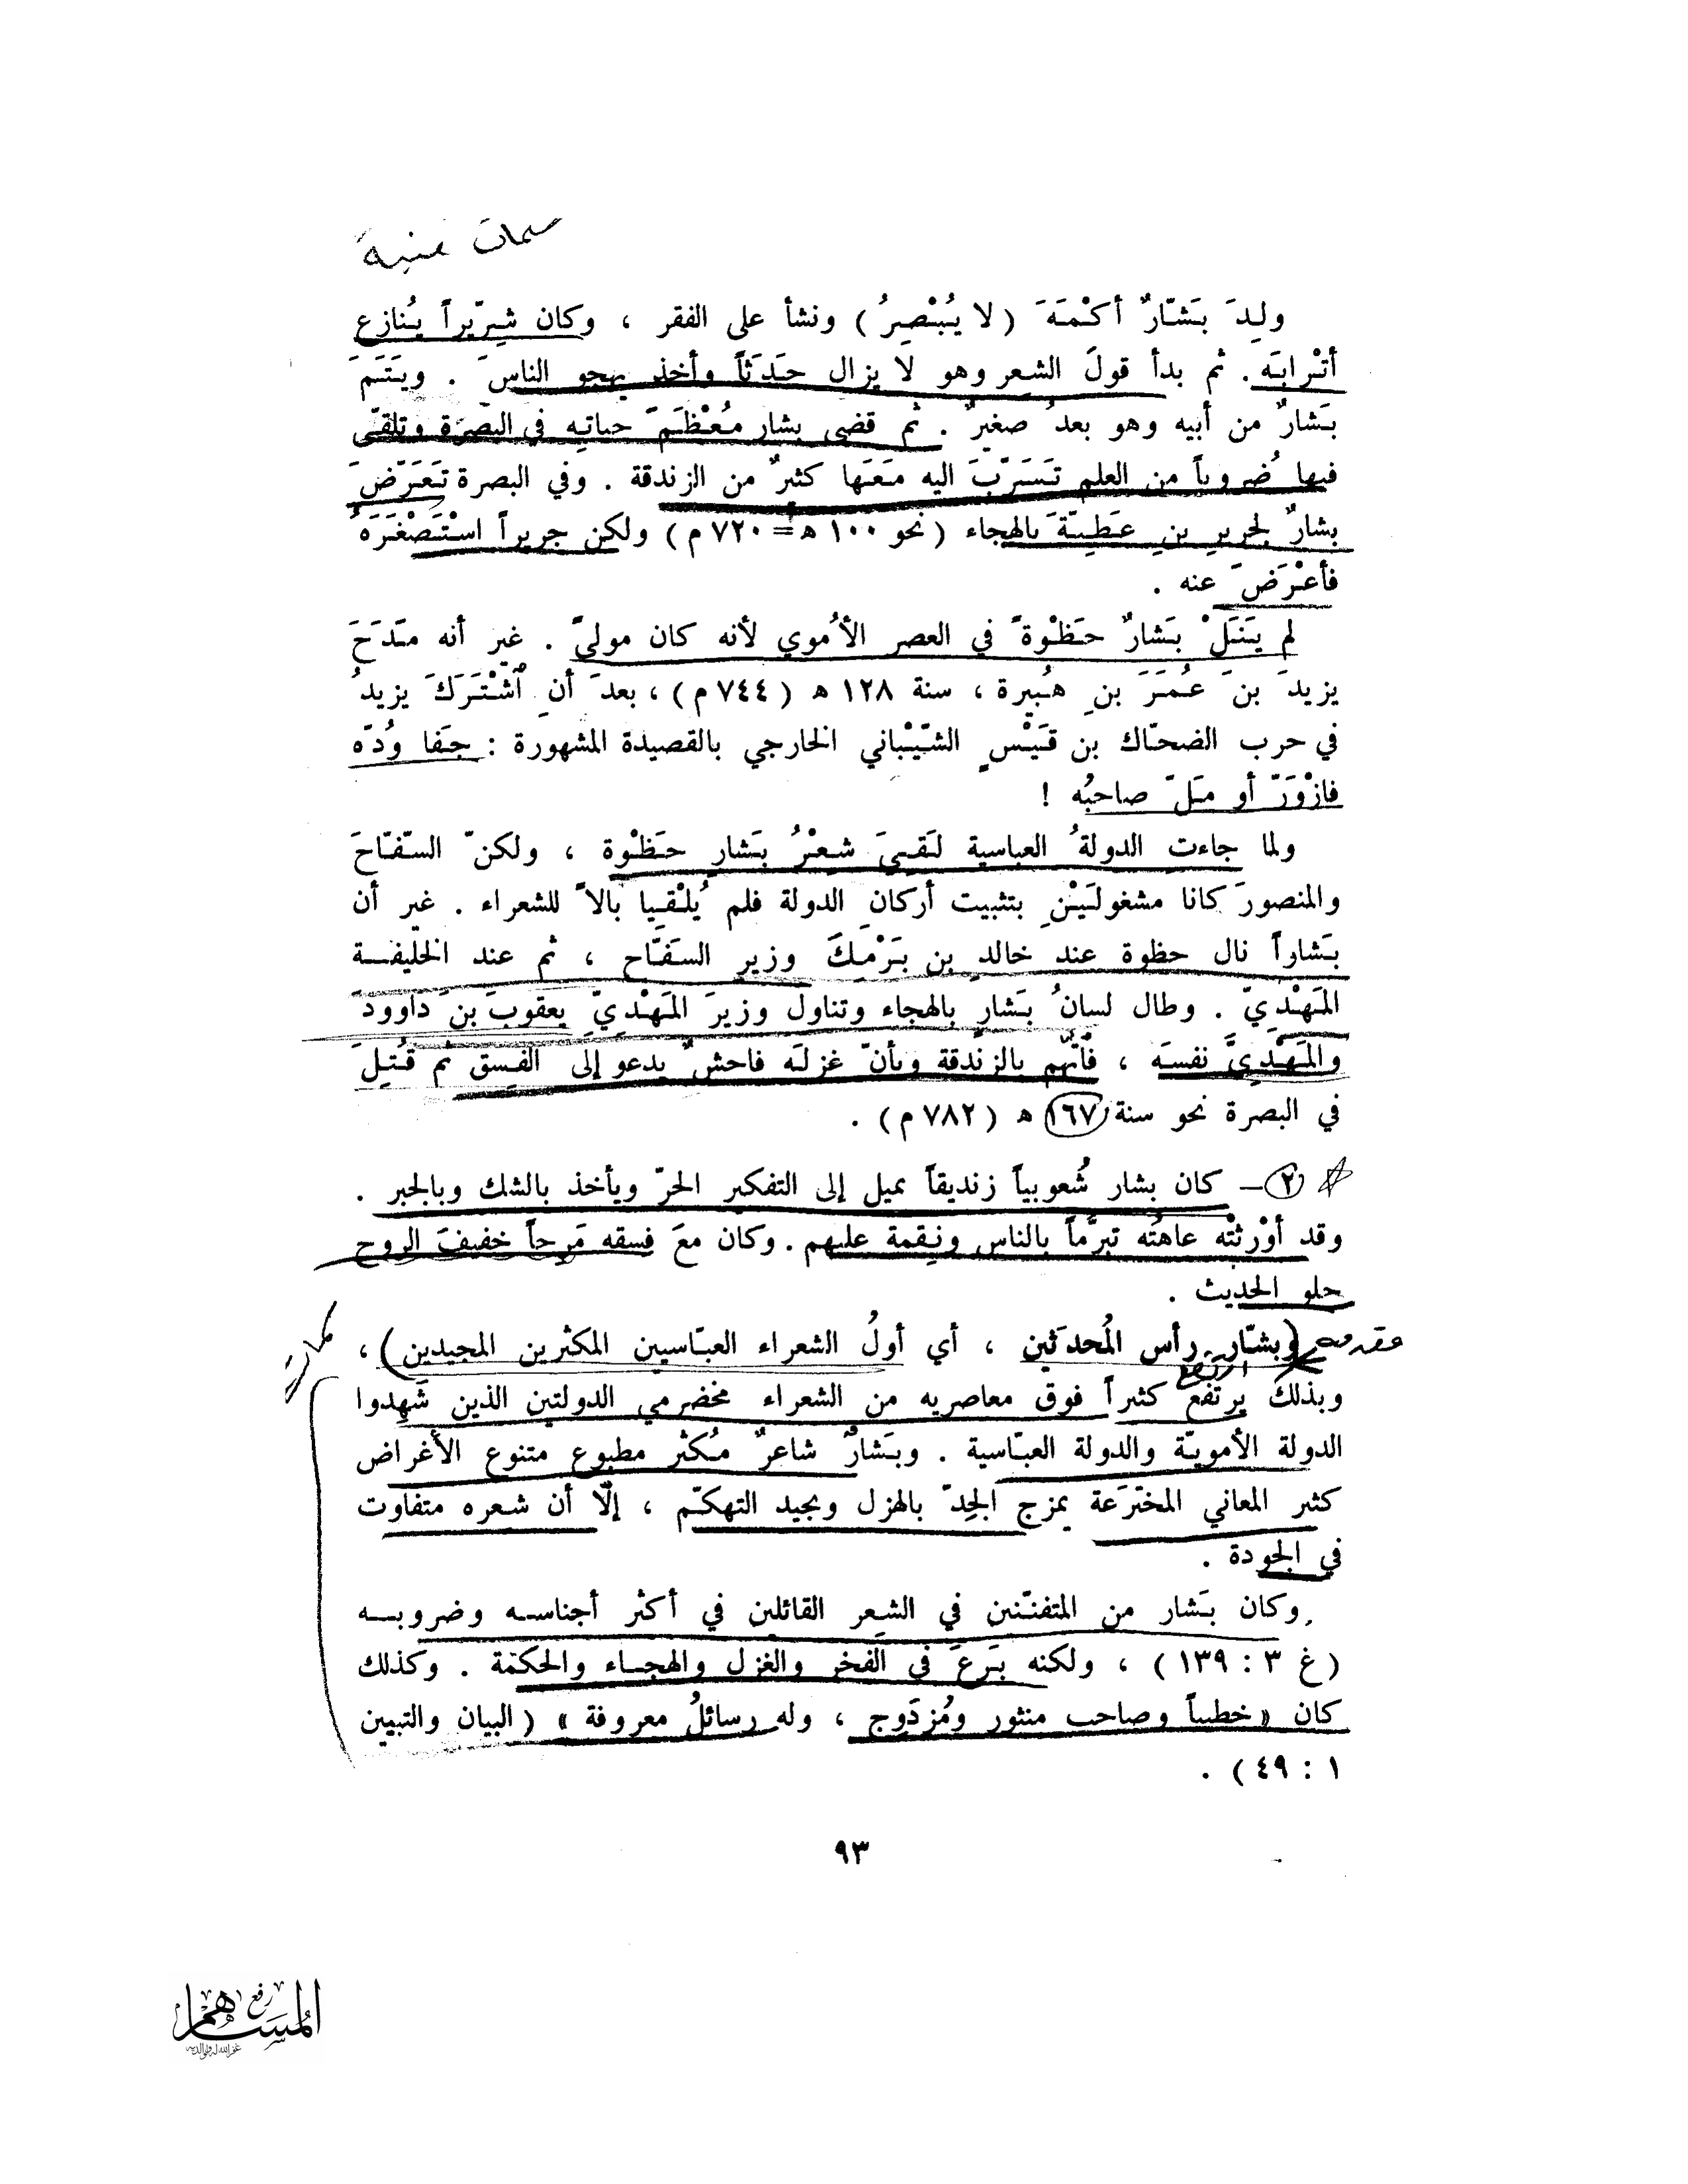 سمات فنية
ولِدَ بَشّارٌ أكْمَهَ (لا يُبْصِرُ) ونشأ على الفقر ، وكان شِرّيراً يُنازع
أتْرابَه . ثم بدأ قولَ الشعر وهو لا يزال حَدَثاً وأخذ يهجو الناسَ . ويَتَمَ
بَشارٌ من أبيه وهو بعدُ صغيرٌ . ثم قضى بشار مُعْظَمَ حياته في البصرة وتلقّى
فيها ضُروباً من العلم تَسَرّبَ اليه مَعَها كثيرٌ من الزندقة . وفي البصرة تَعَرّضَ
بشارٌ لجرير بنِ عَطيّةَ بالهجاء (نحو ١٠٠ ه = ٧٢٠ م) ولكن جريراً اسْتَصْغَرَهُ
فأعْرَضَ عنه .
لم يَنَلْ بَشارٌ حَظْوةً في العصر الأُموي لأنه كان مولىً . غير أنه مَدَحَ
يزيدَ بنَ عُمَرَ بنِ هُبيرة ، سنة ١٢٨ ه (٧٤٤ م) ، بعدَ أنِ ٱشْتَرَكَ يزيدُ
في حرب الضحّاك بن قَيْسٍ الشّيْباني الخارجي بالقصيدة المشهورة : جَفا وُدّه
فازْوَرّ أو مَلّ صاحبُه !
ولما جاءت الدولةُ العباسية لَقِيَ شعْرُ بَشارٍ حَظْوة ، ولكنّ السّفّاحَ
والمنصورَ كانا مشغولَيْنِ بتثبيت أركانِ الدولة فلم يُلْقيا بالاً للشعراء . غير أن
بَشاراً نال حظوة عند خالدِ بن بَرْمَكَ وزيرِ السّفّاح ، ثم عند الخليفــة
المَهْديّ . وطال لسانُ بَشارٍ بالهجاء وتناول وزيرَ المَهْديّ يعقوبَ بنَ داوودَ
والمَهْديَّ نفسَه ، فٱتّهم بالزندقة وبأنّ غزلَه فاحشٌ يدعو إلى الفِسق ثم قُتِلَ
في البصرة نحو سنة ١٦٧ ه (٧٨٢ م) .
٢ – كان بشار شُعوبياً زنديقاً يميل إلى التفكير الحرّ ويأخذ بالشك وبالجبر .
وقد أوْرثتْه عاهتُه تبرُّماً بالناس ونِقمة عليهم . وكان معَ فسقه مَرِحاً خفيفَ الروح
حلو الحديث .
(وبشّار رأس المُحدَثين ، أي أولُ الشعراء العبّاسيين المكثرين المجيدين) ،
وبذلك يرتفع كثيراً فوق معاصريه من الشعراء مخضرمي الدولتين الذين شَهِدوا
الدولة الأمويّة والدولة العبّاسية . وبَشارٌ شاعرٌ مُكثر مطبوع متنوع الأغراض
كثير المعاني المخترَعة يمزج الجِدّ بالهزل ويجيد التهكّم ، إلّا أن شعره متفاوت
في الجودة .
وكان بَشار من المتفنّنين في الشعر القائلين في أكثر أجناســه وضروبــه
(غ ٣ : ١٣٩) ، ولكنه بَرعَ في الفخر والغزل والهجــاء والحكمة . وكذلك
كان « خطيباً وصاحب منثور ومُزدَوج ، وله رسائلُ معروفة » (البيان والتبيين
١ : ٤٩) .
٩٣
رفع
المساهم
غفر الله له ولوالديه